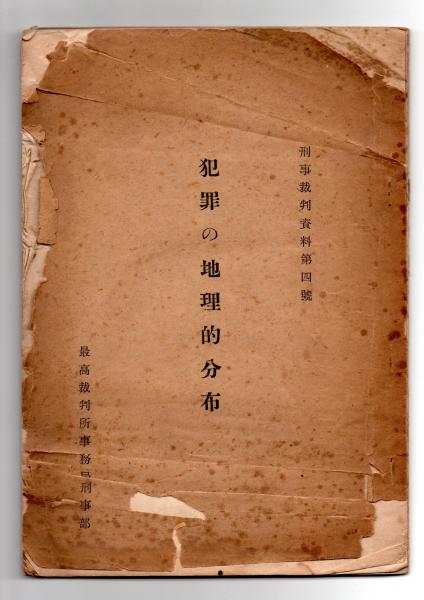 刑事裁判資料第四號
犯罪の地理的分布
最高裁判所事務局刑事部